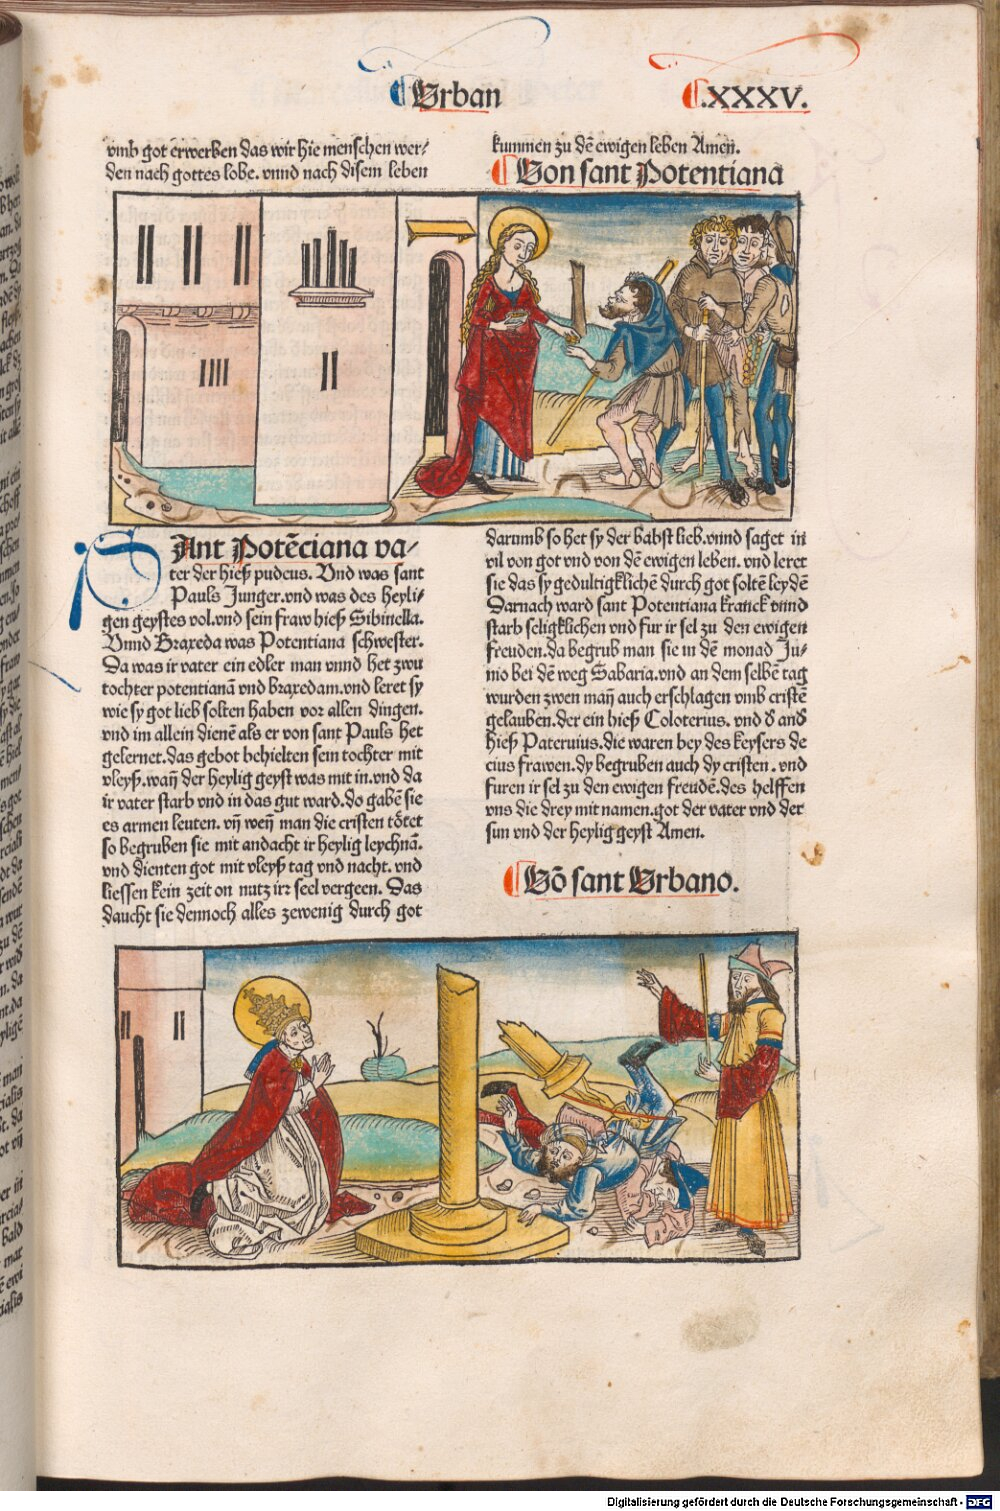 Urban
.XXXV.
vmb got erwerben das wir hie menschen wer/
den nach gottes lobe. vnnd nach disem leben
kummen zu dē ewigen leben Amen.
Von sant Potentiana
SAnt Potēciana va/
ter der hieß pudeus. Vnd was sant
Pauls Junger. vnd was des heyli/
gen geystes vol. vnd sein fraw hieß Sibinella.
Vnnd Braxeda was Potentiana schwester.
Da was ir vater ein edler man vnnd het zwu
tochter potentianā vnd braxedam. vnd leret sy
wie sy got lieb solten haben vor allen dingen.
vnd im allein dienē als er von sant Pauls het
gelernet. das gebot behielten sein tochter mit
vleyß. wañ der heylig geyst was mit in. vnd da
ir vater starb vnd in das gut ward. do gabē sie
es armen leuten. vñ weñ man die cristen tötet
so begruben sie mit andacht ir heylig leychnā.
vnd dienten got mit vleyß tag vnd nacht. vnd
liessen kein zeit on nutz irr seel vergeen. Das
daucht sie dennoch alles zewenig durch got
darumb so het sy der babst lieb. vnnd saget in
vil von got vnd von dē ewigen leben. vnd leret
sie das sy gedultigklichē durch got soltē leydē
Darnach ward sant Potentiana kranck vnnd
starb seligklichen vnd fur ir sel zu den ewigen
freuden. da begrub man sie in dē monad Ju/
nio bei dē weg Sabaria. vnd an dem selbē tag
wurden zwen mañ auch erschlagen vmb cristē
gelauben. der ein hieß Coloterius. vnd d and
hieß Pateruius. die waren bey des keysers de
cius frawen. dy begruben auch dy cristen. vnd
furen ir sel zu den ewigen freudē. des helffen
vns die drey mit namen. got der vater vnd der
sun vnd der heylig geyst Amen.
Vō sant Urbano.
Digitalisierung gefördert durch die Deutsche Forschungsgemeinschaft - DFG